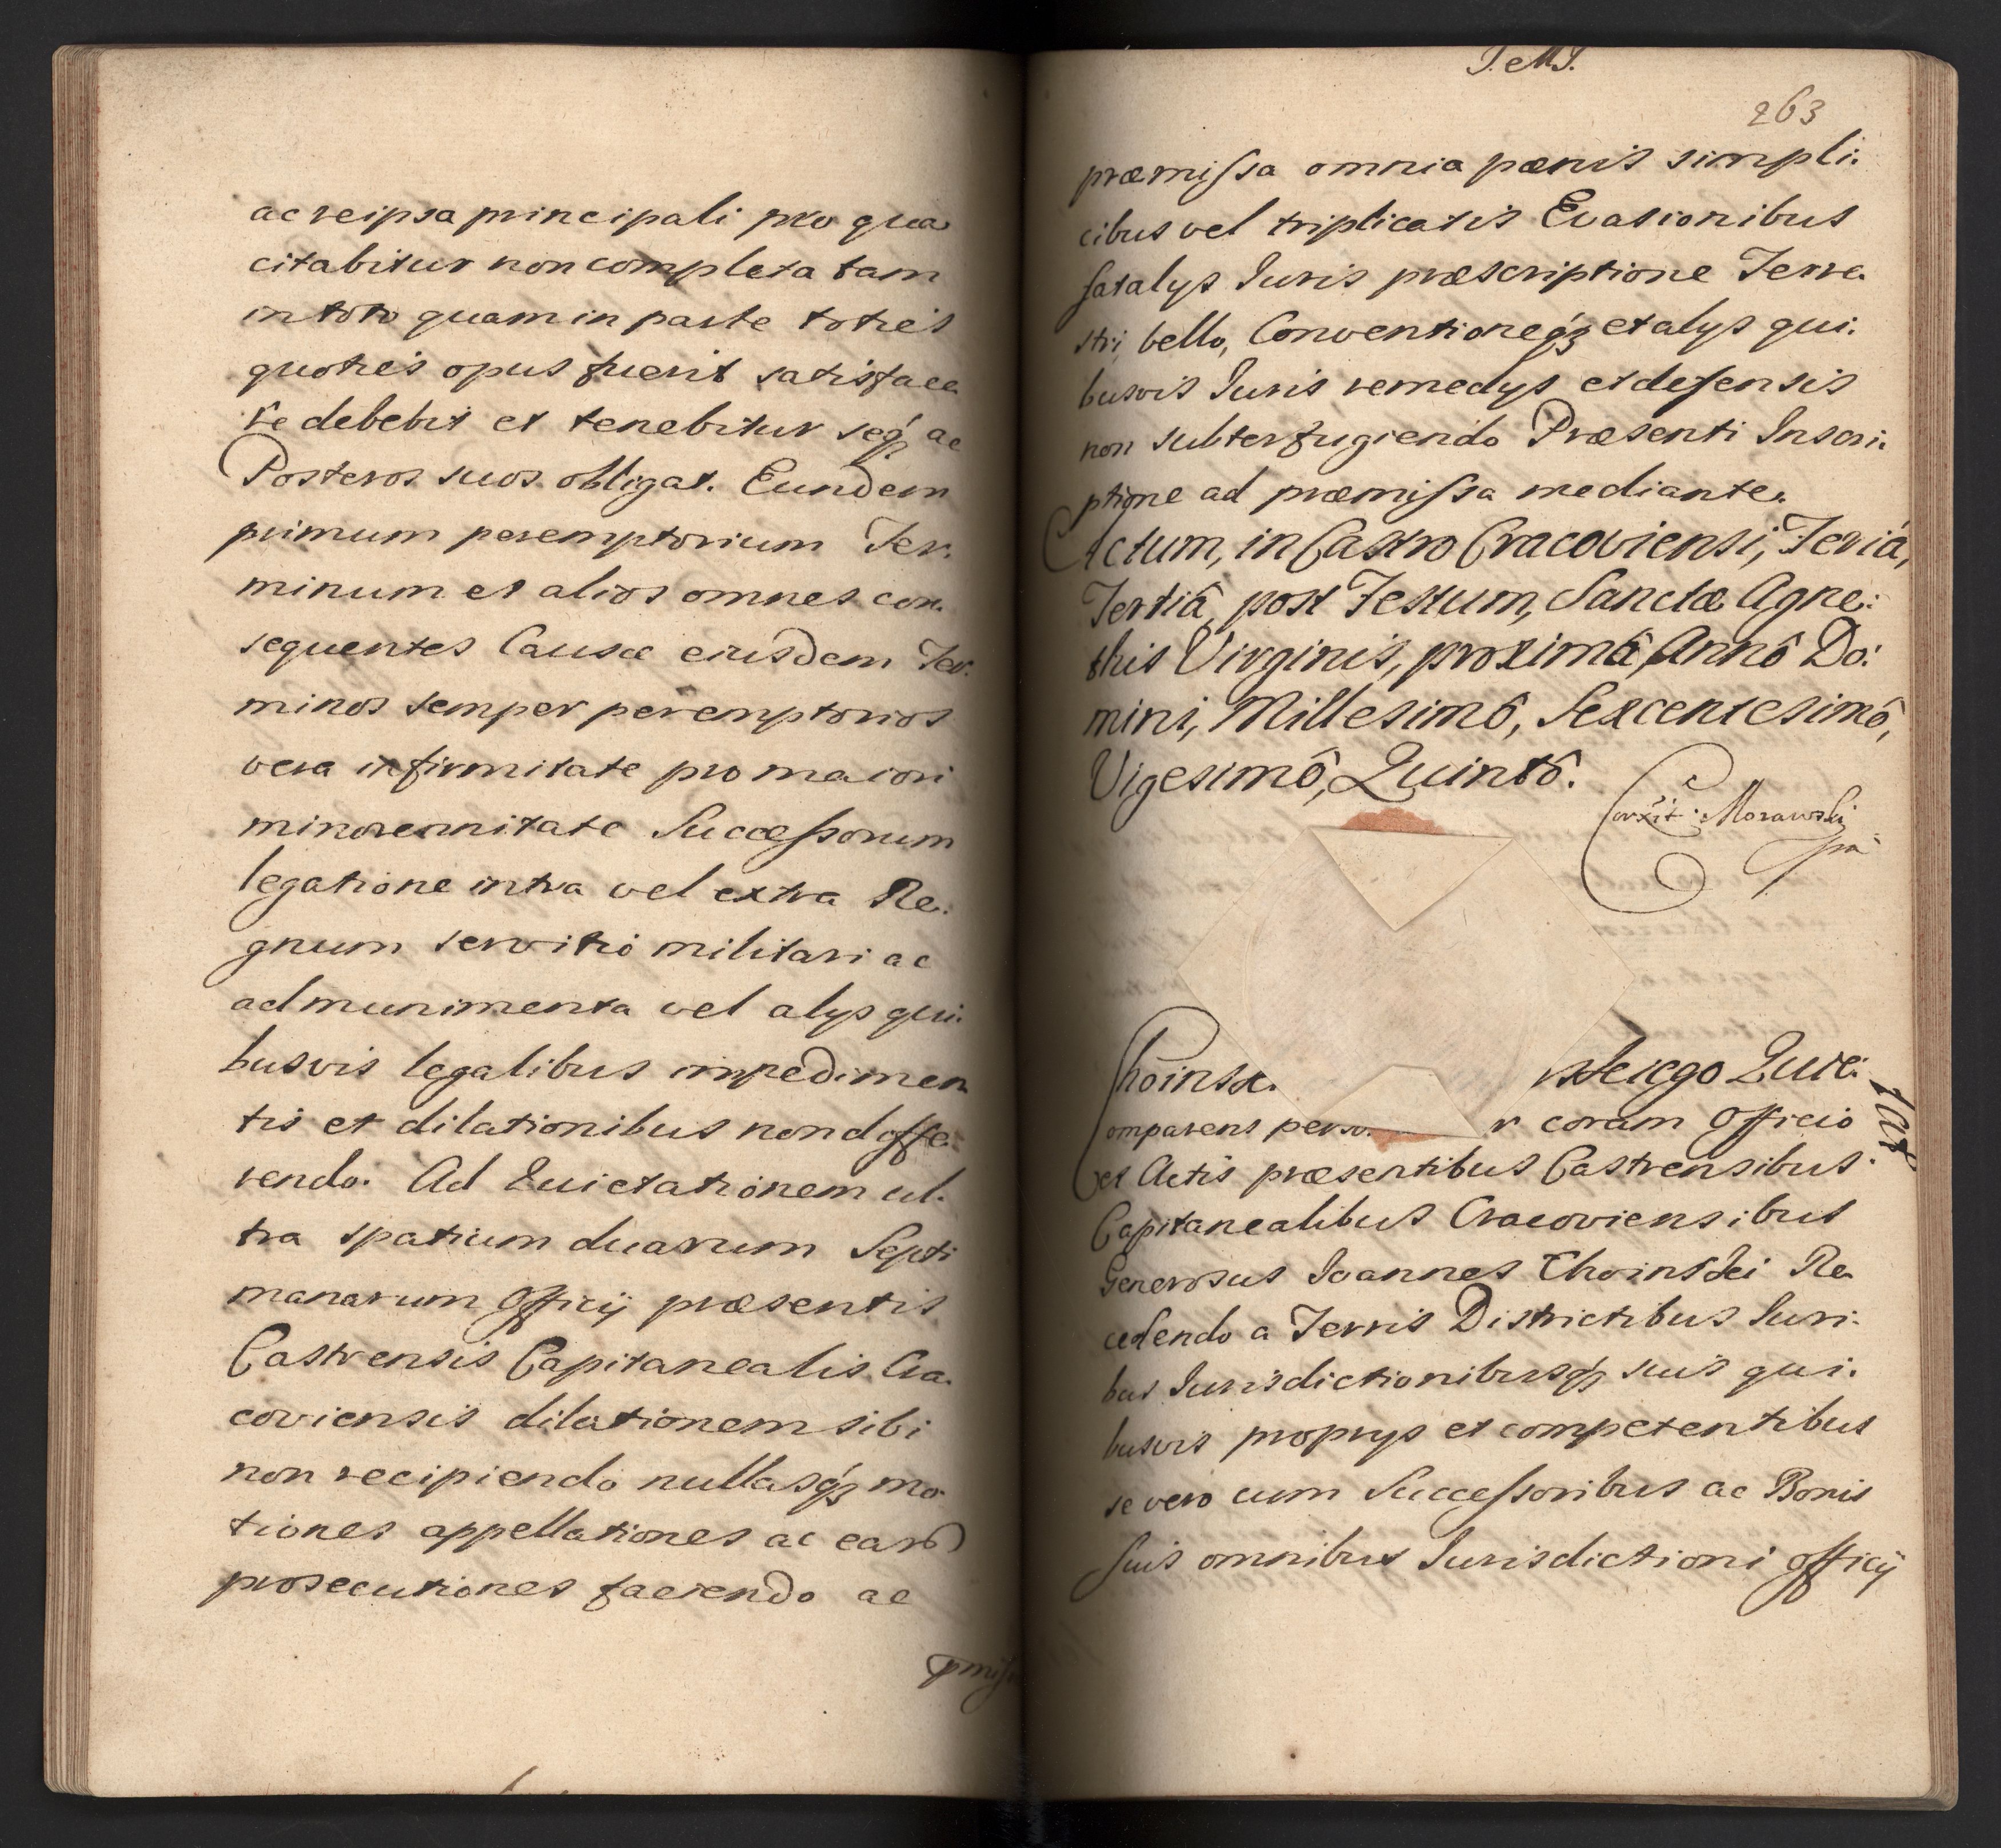 ac reipsa principali pro qua
citabitur non completa tam
in toto quam in parte toties
quoties opus fuerit satisface
re debebit et tenebitur seqꝫ ac
Posteros suos obligat. Eundem
primum peremptorium Ter.
minum et alios omnes con.
sequentes Causæ eiusdem Ter.
minos semper peremptorios
vera infirmitate pro maiori
minorennitate Successorum
legatione intra vel extra Re.
gnum servitio militari ac
ad munimenta vel alijs qui.
busvis legalibus impedimen
tis et dilationibus non diffe.
rendo. Ad Quietationem ul.
tra spatium duarum Septi
manarum Officij præsentis
Castrensis Capitanealis Cra.
coviensis dilationem sibi
non recipiendo nullasqꝫ mo
tiones appellationes ac earū
prosecutiones faciendo ac
J. M. J.
263
præmiſsa omnia pænis simpli.
cibus vel triplicatis Evasionibus
fatalijs Iuris præscriptione Terre.
stri, bello, Conventioneqꝫ et alijs qui.
busvis Iuris remedijs et defensis
non subterfugiendo Præsenti Inscri.
ptione ad præmiſsa mediante.
Actum, in Castro Cracoviensi, Feriâ,
Tertiâ, post Festum, Sanctæ Agne:
this Virginis, proximâ, Annô Do:
mini, Millesimô, Sexcentesimô,
Vigesimô, Quintô.
Corxit: Morawski
Choinsk. skiego Quit:
Comparens perso r coram Officio
et Actis præsentibus Castrensibus
Capitanealibus Cracoviensibus
Generosus Ioannes Choinski Re
cedendo a Terris Districtibus Iuri.
bus Iurisdictionibusqꝫ suis qui.
busvis proprijs et competentibus
se vero cum Succeſsoribus ac Bonis
suis omnibus Iurisdictioni officij